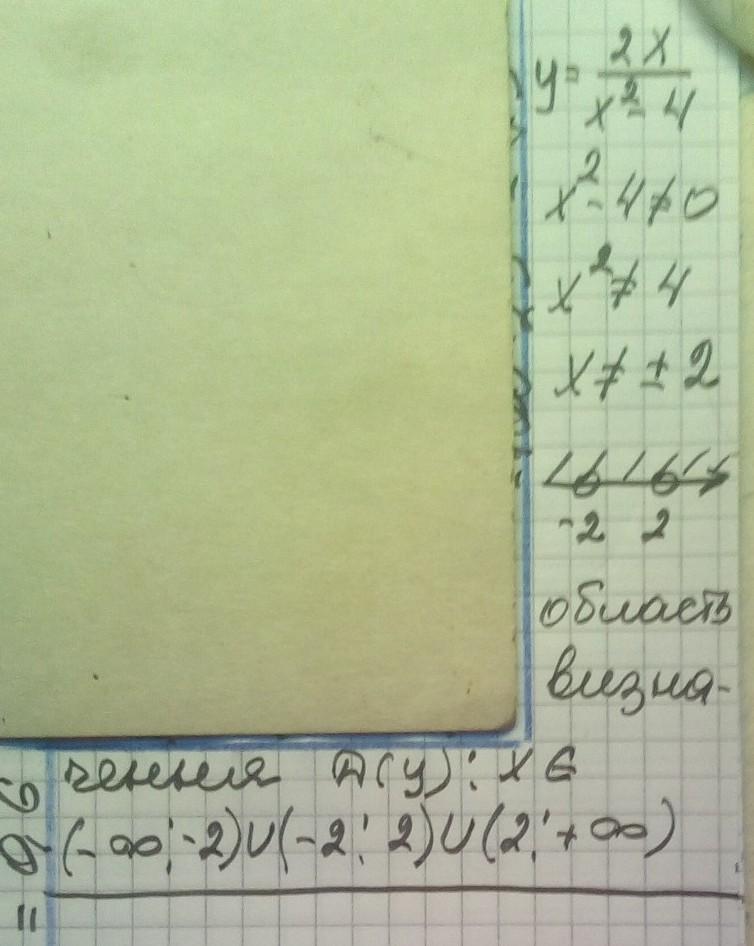 y = 2x / x² - 4
x² - 4 ≠ 0
x² ≠ 4
x ≠ ± 2
-2 2
область
визна-
чення D(y): x ∈
(-∞; -2) ∪ (-2; 2) ∪ (2; +∞)